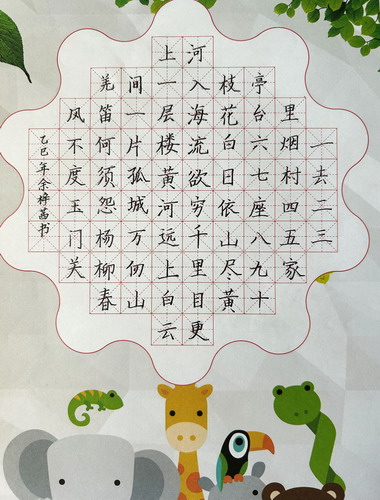 一去二三
里烟村四五家
亭台六七座八九十
枝花白日依山尽黄
河入海流欲穷千里目更
上一层楼黄河远上白云
间一片孤城万仞山
羌笛何须怨杨柳春
风不度玉门关
乙巳年余梓书